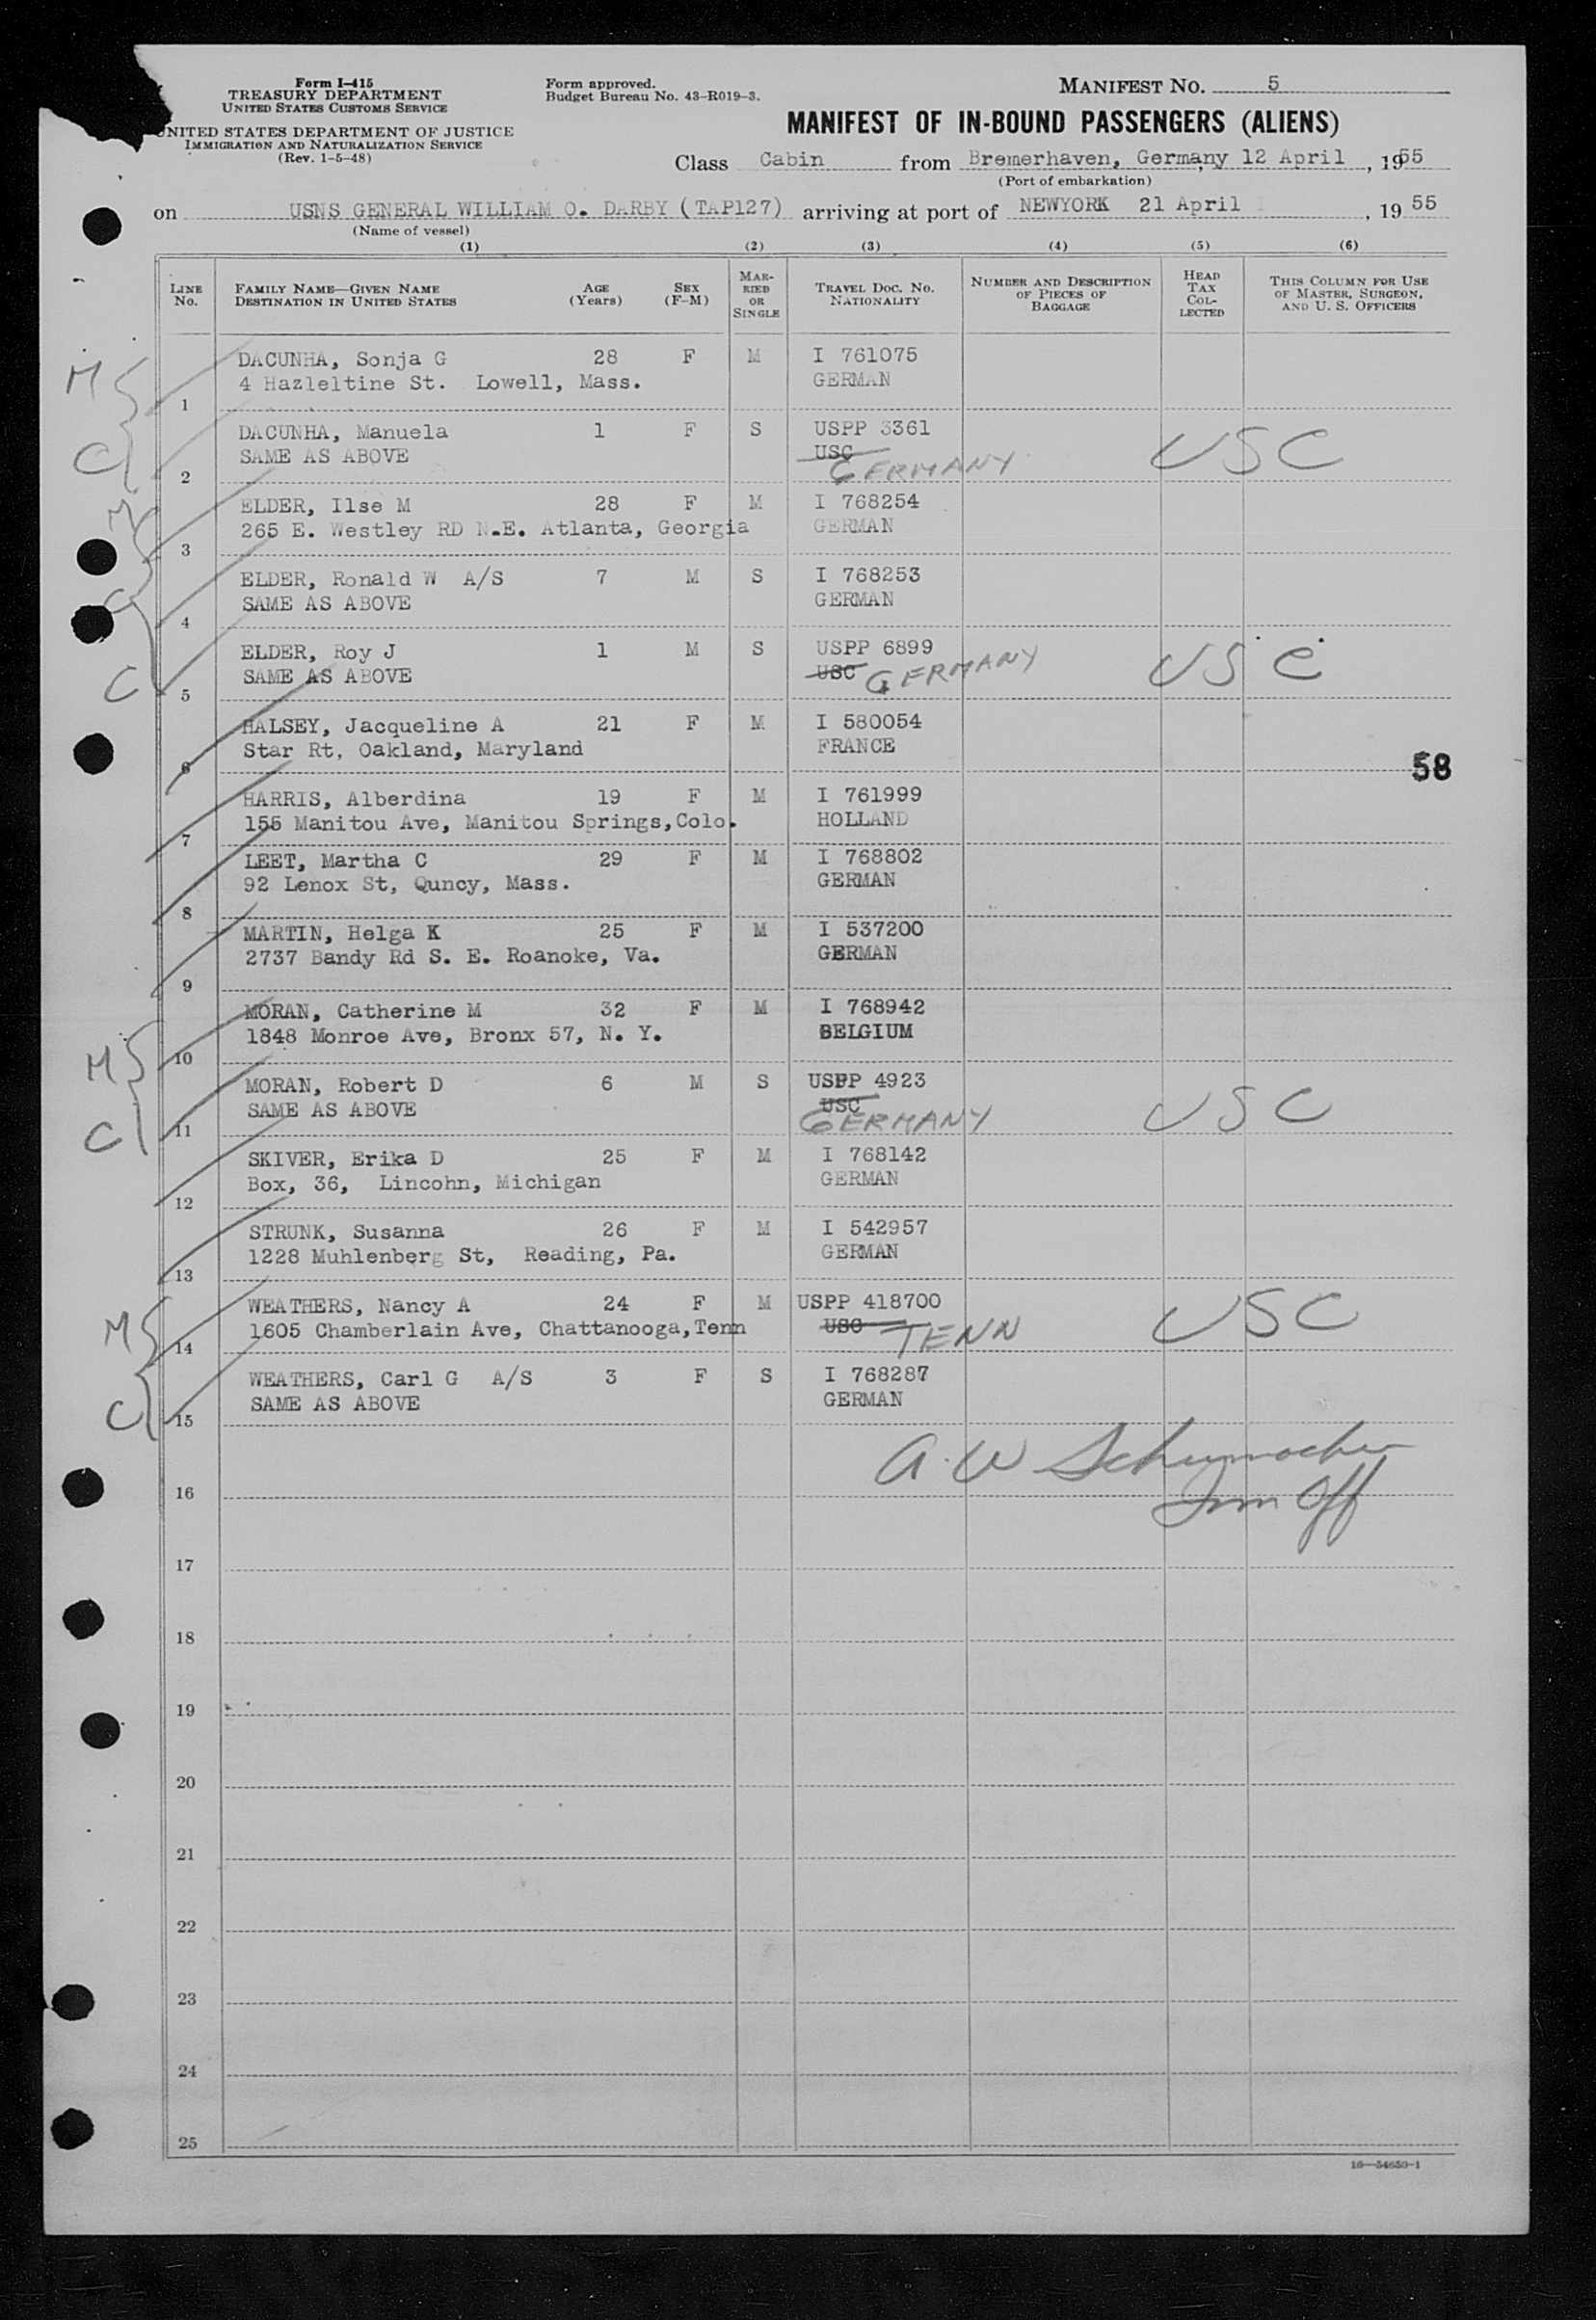 Form I-415
TREASURY DEPARTMENT
UNITED STATES CUSTOMS SERVICE
UNITED STATES DEPARTMENT OF JUSTICE
IMMIGRATION AND NATURALIZATION SERVICE
(Rev. 1-5-48)
Form approved.
Budget Bureau No. 43-R019-3.
MANIFEST NO. 5
MANIFEST OF IN-BOUND PASSENGERS (ALIENS)
Class Cabin from Bremerhaven, Germany, 12 April, 1955
(Port of embarkation)
on USNS GENERAL WILLIAM O. DARBY (TAP127) arriving at port of NEWYORK 21 April, 1955
(Name of vessel)
(1) (2) (3) (4) (5) (6)
LINE No. FAMILY NAME—GIVEN NAME DESTINATION IN UNITED STATES AGE (Years) SEX (F-M) MARRIED OR SINGLE TRAVEL DOC. NO. NATIONALITY NUMBER AND DESCRIPTION OF PIECES OF BAGGAGE HEAD TAX COLLECTED THIS COLUMN FOR USE OF MASTER, SURGEON, AND U. S. OFFICERS
M DACUNHA, Sonja G 28 F M I 761075
4 Hazleltine St. Lowell, Mass. GERMAN
1
DACUNHA, Manuela 1 F S USPP 3361
C SAME AS ABOVE USC GERMANY USC
2
M ELDER, Ilse M 28 F M I 768254
265 E. Westley RD N.E. Atlanta, Georgia GERMAN
3
ELDER, Ronald W A/S 7 M S I 768253
C SAME AS ABOVE GERMAN
4
ELDER, Roy J 1 M S USPP 6899
C SAME AS ABOVE USC GERMANY USC
5
HALSEY, Jacqueline A 21 F M I 580054
Star Rt, Oakland, Maryland FRANCE
6 58
HARRIS, Alberdina 19 F M I 761999
155 Manitou Ave, Manitou Springs,Colo. HOLLAND
7
LEET, Martha C 29 F M I 768802
92 Lenox St, Quncy, Mass. GERMAN
8
MARTIN, Helga K 25 F M I 537200
2737 Bandy Rd S. E. Roanoke, Va. GERMAN
9
MORAN, Catherine M 32 F M I 768942
1848 Monroe Ave, Bronx 57, N. Y. BELGIUM
M 10
MORAN, Robert D 6 M S USPP 4923
SAME AS ABOVE USC GERMANY USC
C 11
SKIVER, Erika D 25 F M I 768142
Box, 36, Lincohn, Michigan GERMAN
12
STRUNK, Susanna 26 F M I 542957
1228 Muhlenberg St, Reading, Pa. GERMAN
13
WEATHERS, Nancy A 24 F M USPP 418700
M 1605 Chamberlain Ave, Chattanooga,Tenn USC TENN USC
14
WEATHERS, Carl G A/S 3 F S I 768287
SAME AS ABOVE GERMAN
C 15
A. W Schumacher
Imm Off
16
17
18
19
20
21
22
23
24
25
16—54650-1